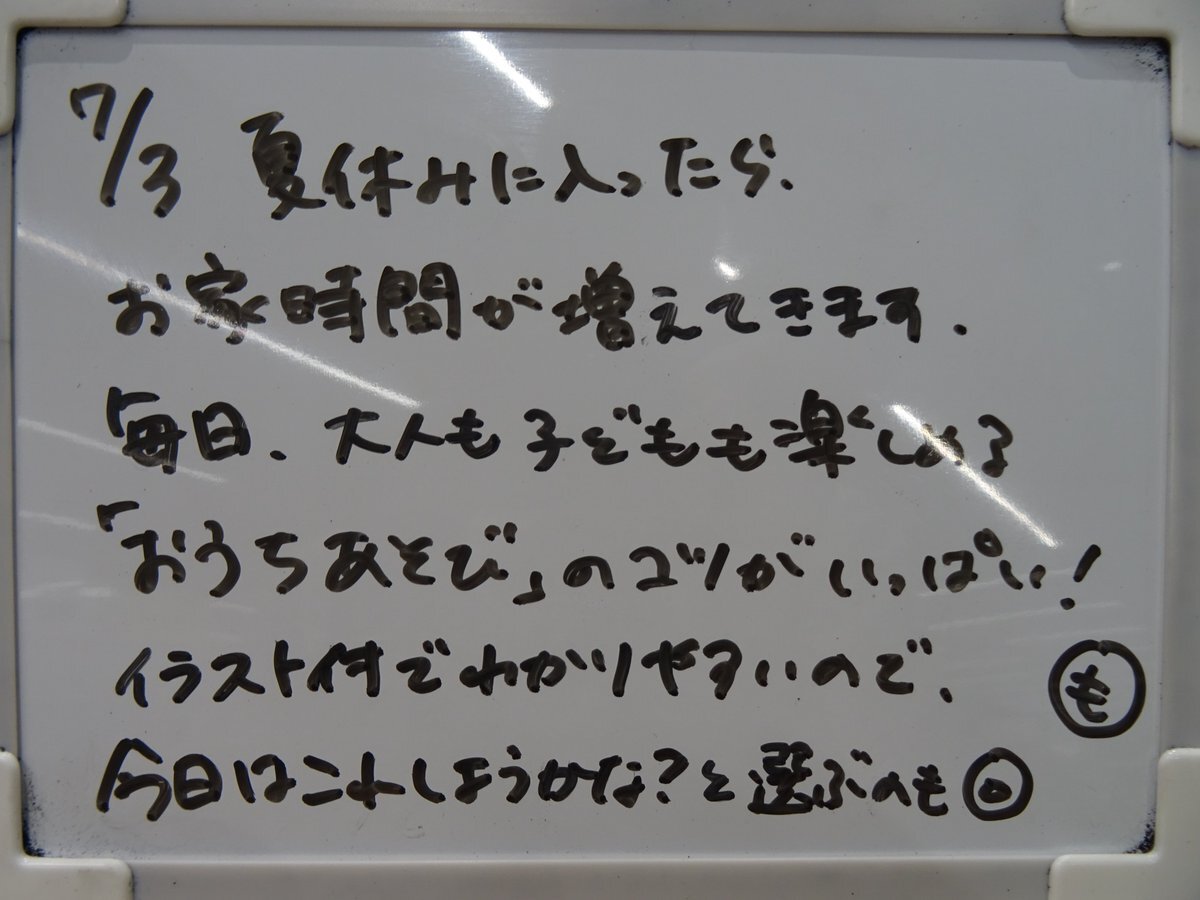 7/3 夏休みに入ったら、
お家時間が増えてきます。
「毎日、大人も子どもも楽しめる
「おうちあそび」のコツがいっぱい!
イラスト付でわかりやすいので、
今日はこれしようかな?と選ぶのも◎
も